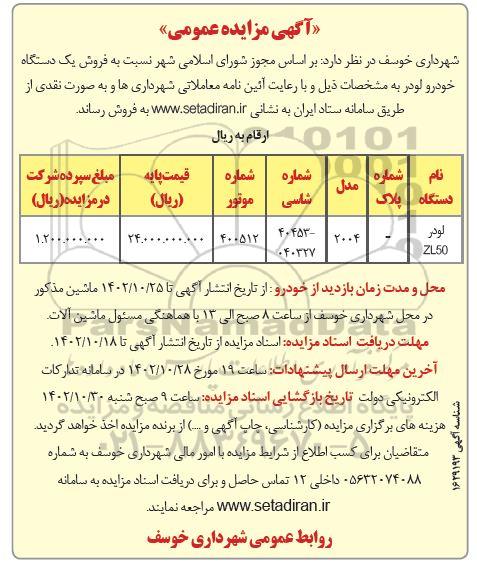 «آگهی مزایده عمومی»
شهرداری خوسف در نظر دارد: بر اساس مجوز شورای اسلامی شهر نسبت به فروش یک دستگاه
خودرو لودر به مشخصات ذیل و با رعایت آئین نامه معاملاتی شهرداری ها و به صورت نقدی از
طریق سامانه ستاد ایران به نشانی www.setadiran.ir به فروش رساند.
ارقام به ریال
نام دستگاه | شماره پلاک | مدل | شماره شاسی | شماره موتور | قیمت پایه (ریال) | مبلغ سپرده شرکت در مزایده (ریال)
لودر ZL50 | - | ۲۰۰۴ | ۴۰۴۵۳-۰۴۰۳۲۷ | ۴۰۰۵۱۲ | ۲۴.۰۰۰.۰۰۰.۰۰۰ | ۱.۲۰۰.۰۰۰.۰۰۰
محل و مدت زمان بازدید از خودرو : از تاریخ انتشار آگهی تا ۱۴۰۲/۱۰/۲۵ ماشین مذکور
در محل شهرداری خوسف از ساعت ۸ صبح الی ۱۳ با هماهنگی مسئول ماشین آلات.
مهلت دریافت اسناد مزایده: اسناد مزایده از تاریخ انتشار آگهی تا ۱۴۰۲/۱۰/۱۸.
آخرین مهلت ارسال پیشنهادات: ساعت ۱۹ مورخ ۱۴۰۲/۱۰/۲۸ در سامانه تدارکات
الکترونیکی دولت تاریخ بازگشایی اسناد مزایده: ساعت ۹ صبح شنبه ۱۴۰۲/۱۰/۳۰
هزینه های برگزاری مزایده (کارشناسی، چاپ آگهی و ...) از برنده مزایده اخذ خواهد گردید.
متقاضیان برای کسب اطلاع از شرایط مزایده با امور مالی شهرداری خوسف به شماره
۰۵۶۳۲۰۷۴۰۸۸ داخلی ۱۲ تماس حاصل و برای دریافت اسناد مزایده به سامانه
www.setadiran.ir مراجعه نمایند.
روابط عمومی شهرداری خوسف
شناسه آگهی ۱۶۲۹۱۹۳
ParsNamadData
۰۲۱-۸۸۳۴۹۶۷۰-۵